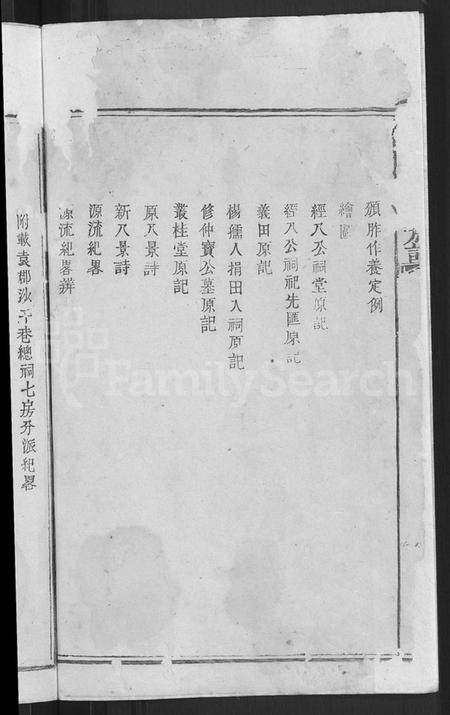 頒胙作養定例
繪圖
經八公祠堂原記
經八公祠祀先匯原記
義田原記
楊孺人捐田入祠原記
修仲寶公墓原記
叢桂堂原記
原八景詩
新八景詩
源流紀畧
源流紀畧辨
附載袁郡沙子巷總祠七房分派紀畧
FamilySearch